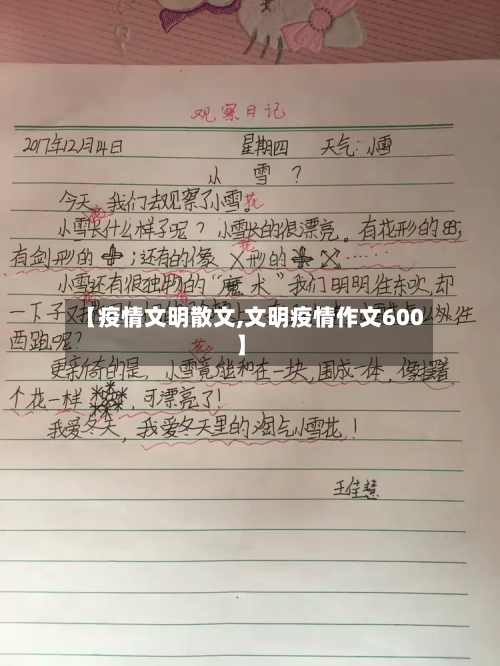 观察日记
2017年12月14日 星期四 天气:小雪
小 雪 ?
今天,我们去观察了小雪花。
小雪花长什么样子呢?小雪花长的很漂亮。有花形的
有剑形的 ;还有的像 X形的
小雪花还有很独特的“魔术”我们明明往东吹,却
一下子又 以外往
【疫情文明散文,文明疫情作文600
】
西跑呢?
更新奇的是,小雪竟能和在一块,围成一体,像
个花一样 可漂亮了!
我爱冬天,我爱冬天里的淘气小雪花!
王佳慧